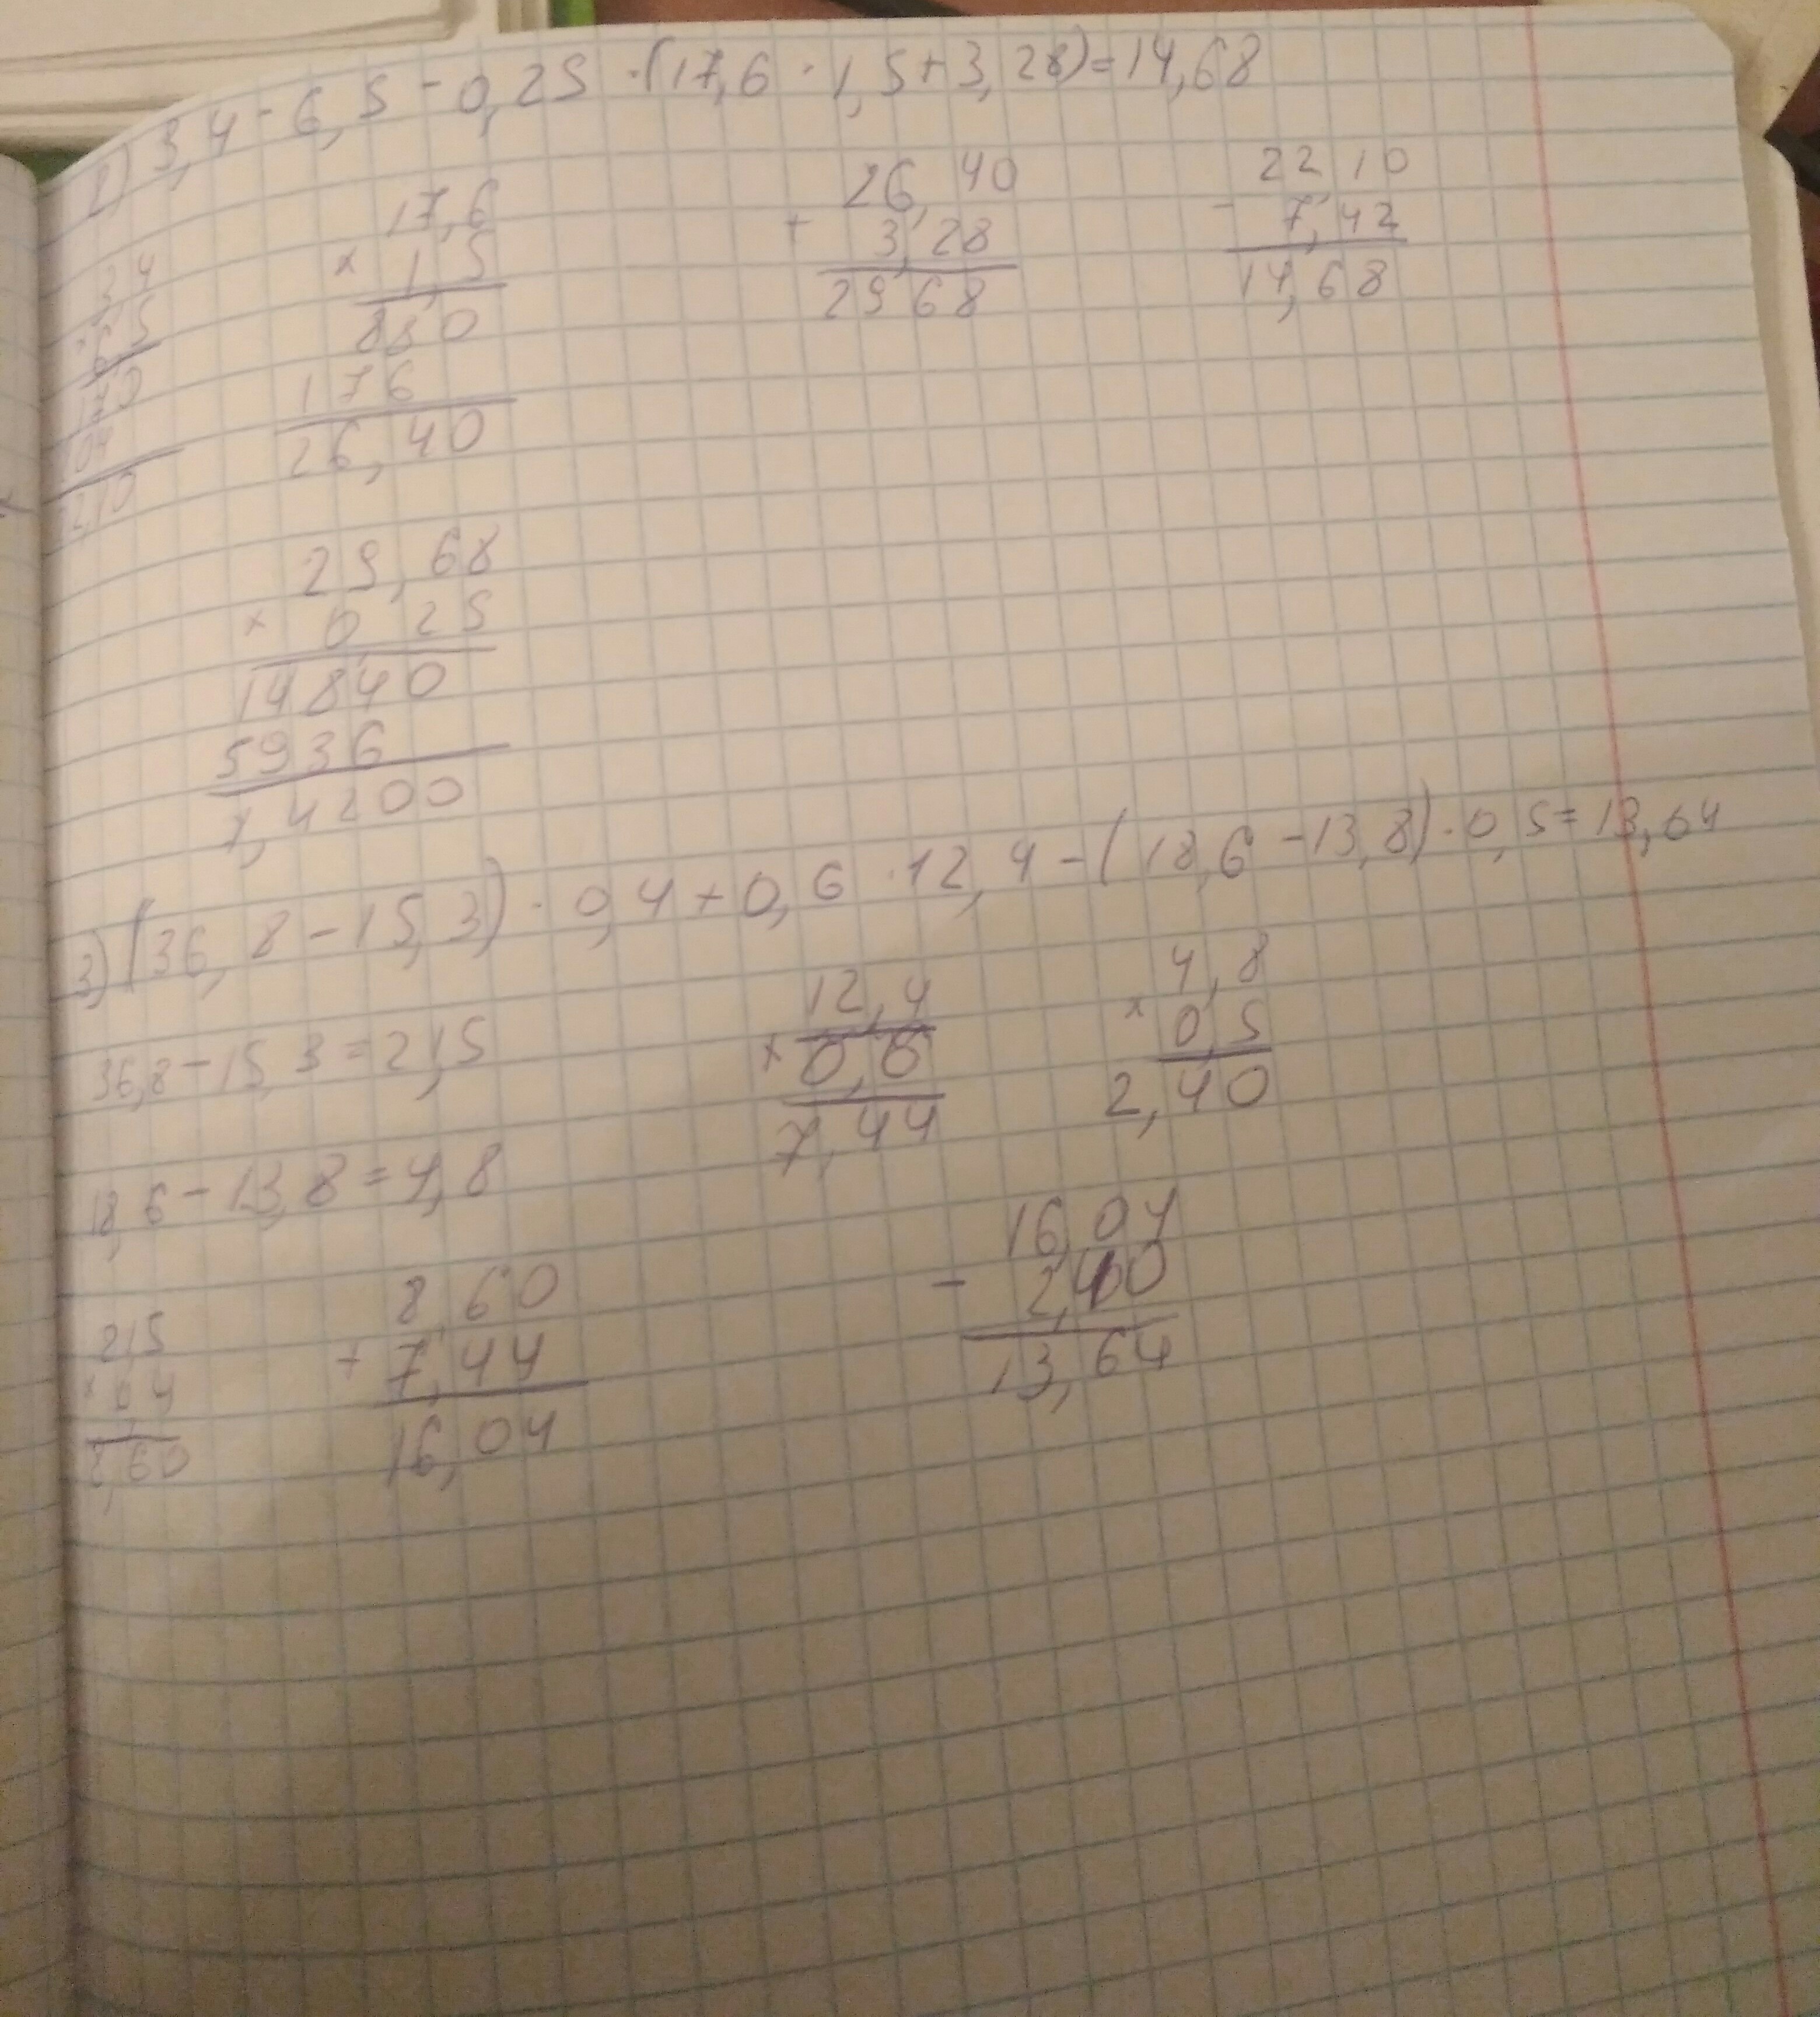 2) 3,4 - 6,5 - 0,25 · (17,6 · 1,5 + 3,28) = 14,68
34
× 65
170
204
2210
17,6
× 1,5
880
176
26,40
26,40
+ 3,28
29,68
22,10
- 7,42
14,68
29,68
× 0,25
14840
5936
7,4200
3) (36,8 - 15,3) · 0,4 + 0,6 · 12,4 - (18,6 - 13,8) · 0,5 = 13,64
36,8 - 15,3 = 21,5
12,4
× 0,6
7,44
4,8
× 0,5
2,40
18,6 - 13,8 = 4,8
21,5
× 0,4
8,60
8,60
+ 7,44
16,04
16,04
- 2,40
13,64